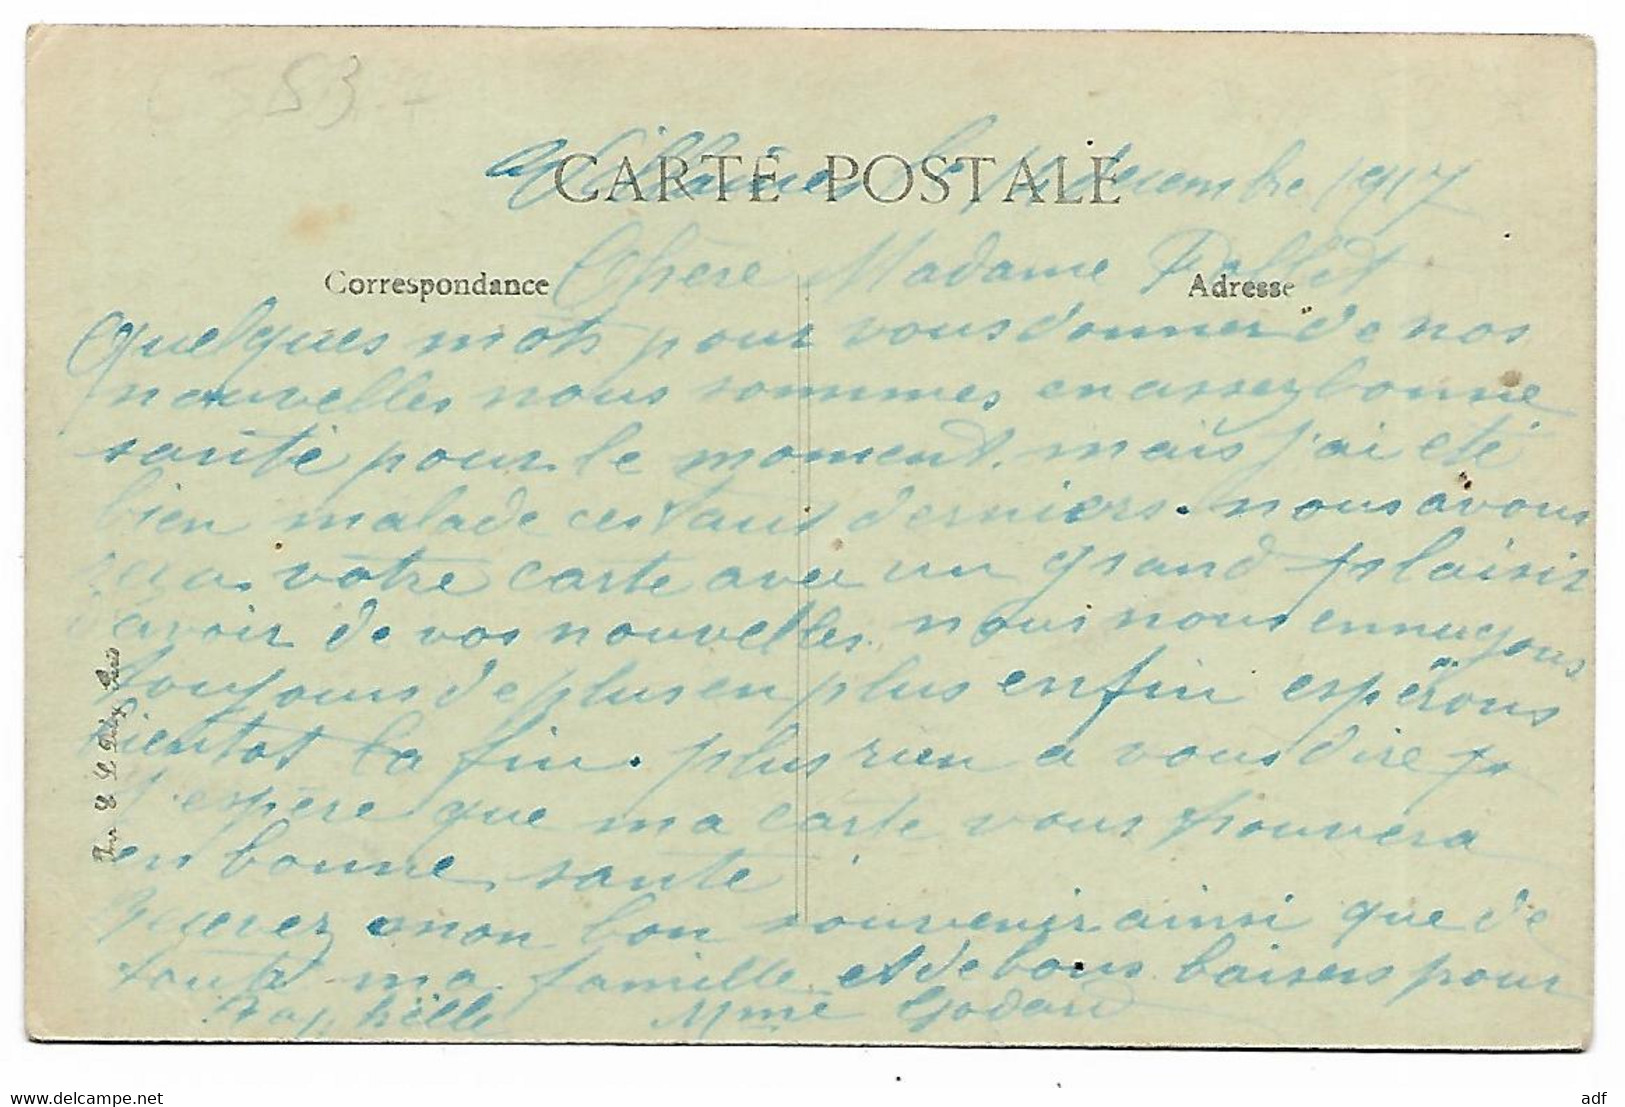 53
CARTE POSTALE
Villaines le décembre 1917
Correspondance
Adresse
Chère Madame
Quelques mots pour vous donner de nos
nouvelles nous sommes en assez bonne
santé pour le moment. mais j'ai été
bien malade ces taus derniers. nous avons
votre carte avec un grand plaisir
d'avoir de vos nouvelles. nous nous ennuyons
toujours de plus en plus enfin espérons
bientot la fin. plus rien a vous dire
j'espère que ma carte vous trouvera
en bonne santé
Recevez mon bon souvenir ainsi que de
toute ma famille et de bons baisers pour
Raphëlle Mme Godard
Paris
www.delcampe.net
adf